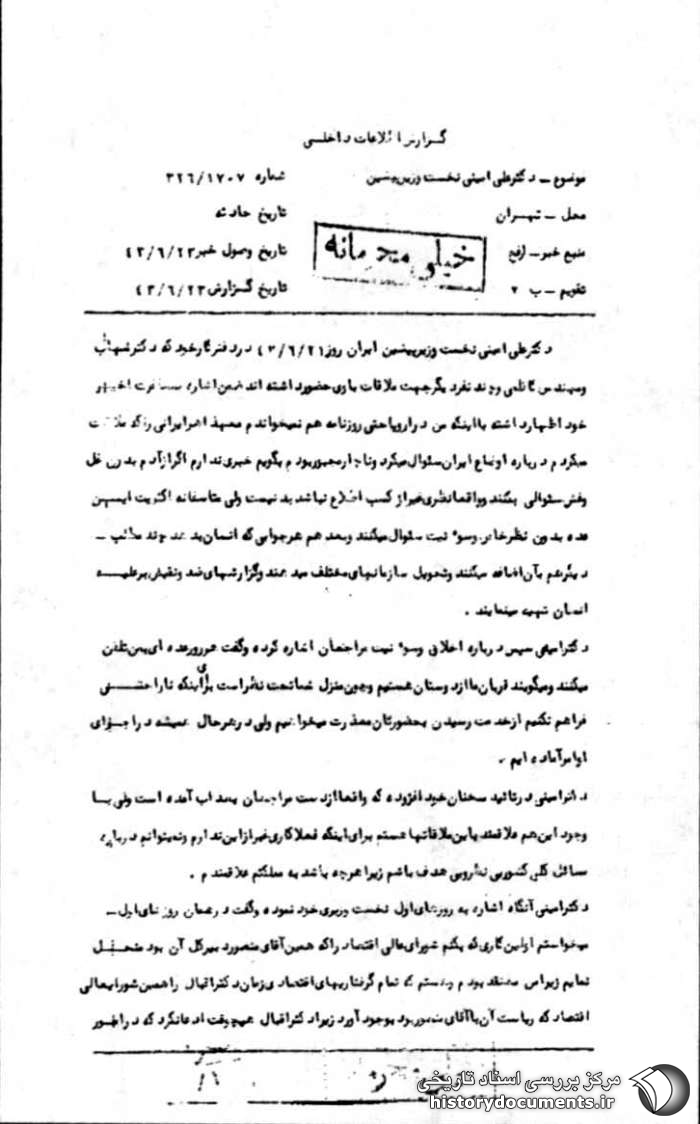 گزارش اطلاعات داخلی
موضوع ــ دکترعلی امینی نخست وزیرپیشین
شماره ۳۲۶/۱۷۰۷
محل ــ تهران
تاریخ حادثه
منبع خبر ــ ارفع
تاریخ وصول خبر ۴۳/۶/۲۳
تقویم ــ ب ۲
تاریخ گزارش ۴۳/۶/۲۳
خیلی محرمانه
دکترعلی امینی نخست وزیرپیشین ایران روز ۴۳/۶/۲۱ در دفترکارخود که دکترشهاب
ومهندس کاظمی وچند نفردیگرجهت ملاقات باوی حضورداشته اند ضمن اشاره بمسافرت اخیر
خود اظهارداشته بااینکه من دراروپاحتی روزنامه هم نمیخواندم معهذا هرایرانی راکه ملاقات
میکردم درباره اوضاع ایران سئوال میکرد وناچارمجبوربودم بگویم خبری ندارم اگرازآدم بدون غل
وغش سئوالی بکنند وواقعانظری غیرازکسب اطلاع نباشد بد نیست ولی متاسفانه اکثریت این
عده بدون نظرخاص وسوء نیت سئوال میکنند وبعد هم هرجوابی که انسان بدهد چند مطلب ــ
دیگرهم بآن اضافه میکنند وتحویل سازمانهای مختلف میدهند وگزارشهای ضد ونقیض برعلیه
انسان تهیه مینمایند .
دکترامینی سپس درباره اخلاق وسوء نیت مراجعان اشاره کرده وگفت هرروزعده ای بمن تلفن
میکنند ومیگویند قربان ماازدوستان هستیم وچون منزل شماتحت نظراست برای اینکه ناراحتی
فراهم نکنیم ازخدمت رسیدن بحضورتان معذرت میخواهیم ولی درهرحال همیشه در اجرای
اوامرآماده ایم .
دکترامینی درتائید سخنان خود افزوده که واقعاازدست مراجعان بعذاب آمده است ولی با
وجود این هم علاقمند باین ملاقاتها هستم برای اینکه فعلاکاری غیرازاین ندارم ونمیتوانم درباره
مسائل کلی کشوربی نظروبی هدف باشم زیرا هرچه باشد به مملکتم علاقمندم .
دکترامینی آنگاه اشاره به روزهای اول نخست وزیری خود نموده وگفت درهمان روزهای اول ــ
میخواستم اولین کاری که بکنم شورای عالی اقتصاد راکه همین آقای منصور دبیرکل آن بود منحل
نمایم زیرامن معتقد بودم وهستم که تمام گرفتاریهای اقتصادی زمان دکتراقبال راهمین شورایعالی
اقتصاد که ریاست آن باآقای منصوربود بوجود آورد زیرادکتراقبال هیچوقت ادعانکرد که در امور
محرمانه
۱۶
مرکز بررسی اسناد تاریخی
historydocuments.ir